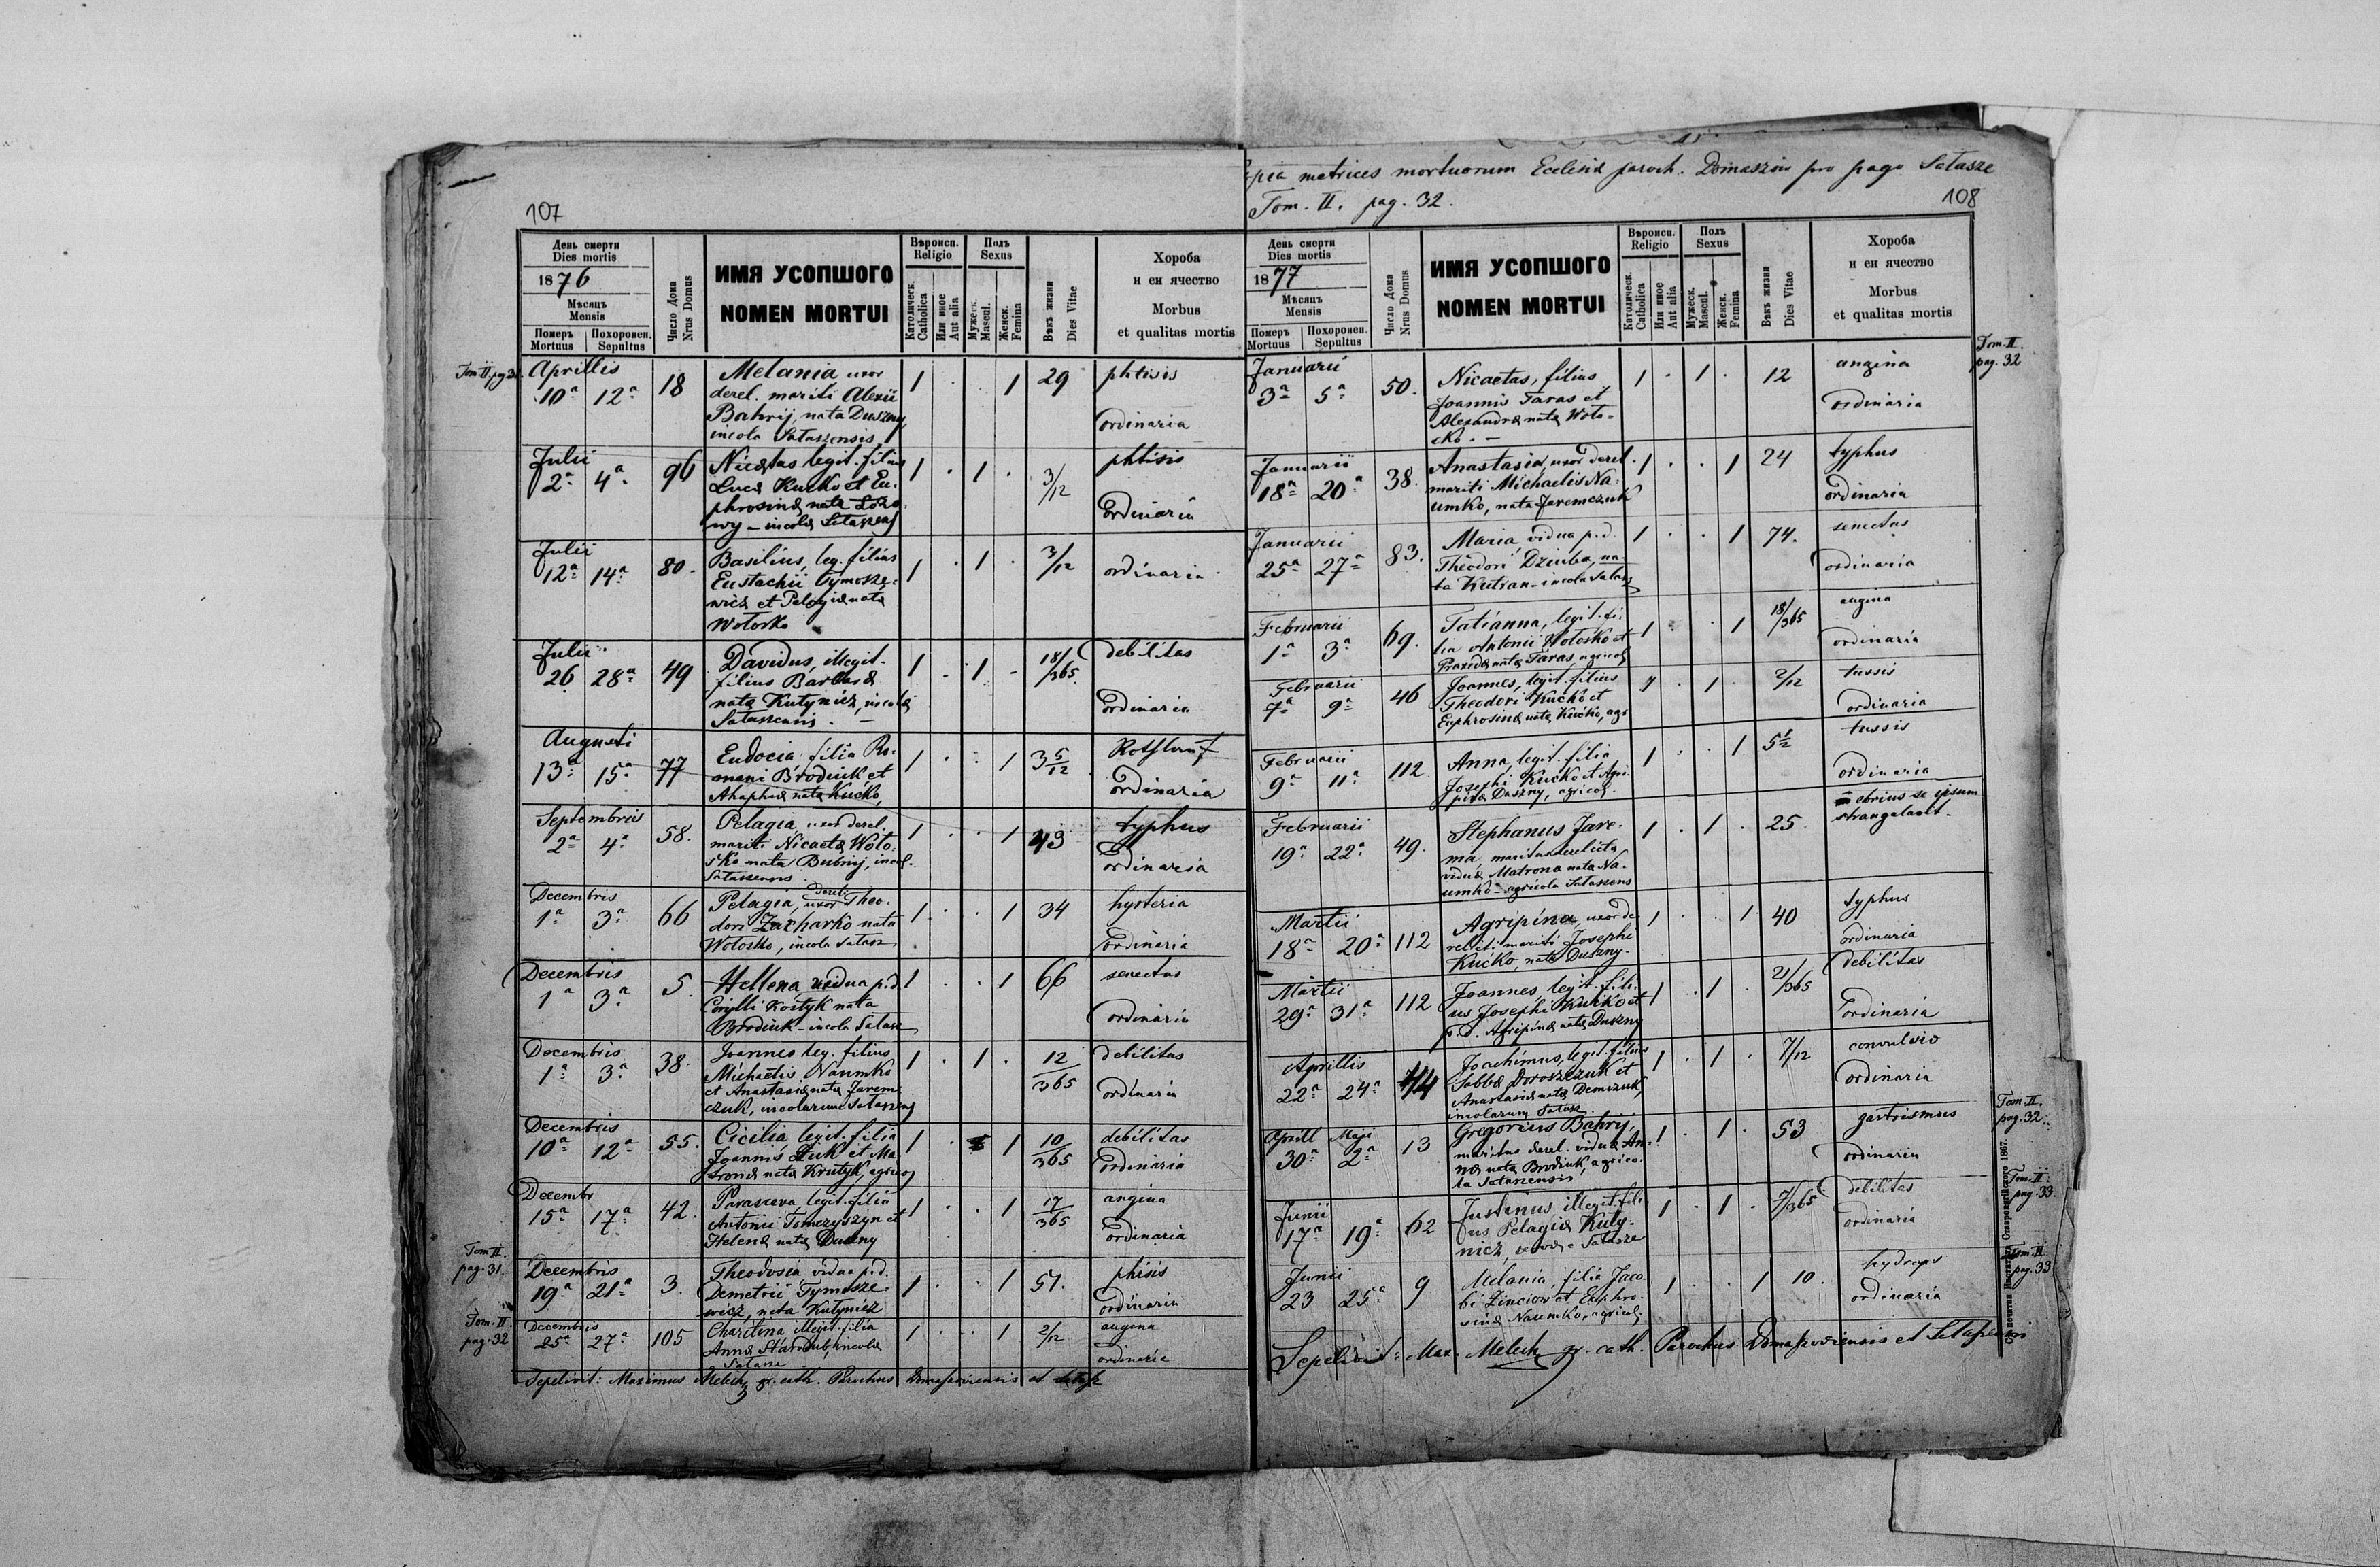 107
День смерти
Dies mortis
1876
Мѣсяцъ
Mensis
Померъ Похоронен.
Mortuus Sepultus
Число Дома
Nrus Domus
ИМЯ УСОПШОГО
NOMEN MORTUI
Вѣроисп.
Religio
Католическ.
Catholica
Или иное
Aut alia
Полъ
Sexus
Мужеск.
Mascul.
Женск.
Femina
Вѣкъ жизни
Dies Vitae
Хороба
и єи ячество
Morbus
et qualitas mortis
Aprillis
10ª 12ª 18 Melania uxor 1 . . 1 29 phtisis
derel. mariti Alexii
Bahrij, nata Duszny,
incola Sałaszensis ordinaria
Julii
2ª 4ª 96 Nicetas legit. filius 1 . 1 . 3/12 phtisis
Lucæ Kućko et Eu-
phrosinæ natæ
wy - incolæ ordinaria
Julii
12ª 14ª 80 Basilius, leg. filius 1 . 1 . 3/12 ordinaria
Eustachii Tymosze-
wicz et Pelagiæ natæ
Wołosko
Julii
26 28ª 49 Davidus, illegit. 1 . 1 . 18/365 debilitas
filius Barbaræ
natæ Kutynicz, incolæ
Sałaszensis. ordinaria
Augusti
13ª 15ª 77 Eudocia, filia Ro- 1 . . 1 3 5/12
mani Brodiuk et
Ahaphiæ natæ Kućko, ordinaria
Septembris
2ª 4ª 58. Pelagia uxor derel. 1 . . 1 43 typhus
mariti Nicaetæ Woło-
sko nata incol.
Sałaszensis ordinaria
Decembris
1ª 3ª 66 Pelagia, uxor Theo- 1 . . 1 34 hysteria
dori Zacharko nata
Wołosko, incola Sałasz ordinaria
Decembris
1ª 3ª 5. Hellena vidua p.d. 1 . . 1 66 senectus
Cirylli Kostyk nata
Brodiuk - incola Sałasz ordinaria
Decembris
1ª 3ª 38. Joannes leg. filius 1 . 1 . 12/365 debilitas
Michaelis Naumko
et Anastasiæ natæ Jarem-
czuk, incolarum Sałaszens ordinaria
Decembris
10ª 12ª 55. Cicilia legit. filia 1 . 1 10/365 debilitas
Joannis Łuk et Ma-
tronæ natæ Krutyk, agricol ordinaria
Decembr
15ª 17ª 42. Parasceva legit. filia 1 . . 1 17/365 angina
Antonii Tomczyszyn et
Helenæ natæ Duszny ordinaria
Tom II.
pag. 31.
Decembris
19ª 21ª 3. Theodosia vidua p.d. 1 . . 1 51. phisis
Demetrii Tymosze-
wicz, nata Kutynicz ordinaria
Tom. II
pag. 32
Decembris
25ª 27ª 105 Charitina illegit. filia 1 . . 1 2/12 angina
Annæ Starodub, incolæ
Sałasze ordinaria
Sepelivit: Maximus Melech gr. cath. Parochus Domaszoviensis et
metrices mortuorum Eclesiæ paroch. Domaszów pro pago Sałasze
Tom. II. pag. 32.
108
День смерти
Dies mortis
1877
Мѣсяцъ
Mensis
Померъ Похоронен.
Mortuus Sepultus
Число Дома
Nrus Domus
ИМЯ УСОПШОГО
NOMEN MORTUI
Вѣроисп.
Religio
Католическ.
Catholica
Или иное
Aut alia
Полъ
Sexus
Мужеск.
Mascul.
Женск.
Femina
Вѣкъ жизни
Dies Vitae
Хороба
и єи ячество
Morbus
et qualitas mortis
Tom. II.
pag. 32
Januarii
3ª 5ª 50. Nicaetas, filius 1 . 1 . 12 angina
Joannis Taras et
Alexandræ natæ Woło-
sko. - ordinaria
Januarii
18ª 20ª 38. Anastasia, uxor derel. 1 . . 1 24 typhus
mariti Michaelis Na-
umko, nata Jaremczuk ordinaria
Januarii
25ª 27ª 83. Maria vidua p.d. 1 . . 1 74. senectus
Theodori Dziuba, na-
ta Kutran - incola Sałasz ordinaria
Februarii
1ª 3ª 69. Tatianna, legit. fi- 1 . . 1 18/365 angina
lia Antonii Wołosko et
Praxedæ natæ Taras, agricol ordinaria
Februarii
7ª 9ª 46 Joannes, legit. filius 1 . 1 . 2/12 tussis
Theodori Kućko et
Euphrosinæ natæ Kućko, agr ordinaria
Februarii
9ª 11ª 112 Anna, legit. filia 1 . . 1 5½ tussis
Josephi Kućko et Agri-
pinæ Duszny, agricol. ordinaria
Februarii
19ª 22ª 49. Stephanus Jare- 1 . 1 . 25 ebrius se ipsum
ma, maritus derelictæ strangulavit.
viduæ Matrona nata Na-
umko - agricola Sałaszens
Martii
18ª 20ª 112 Agripina, uxor de- 1 . . 1 40 typhus
relicti mariti Josephi
Kućko, nata Duszny. ordinaria
Martii
29ª 31ª 112 Joannes, legit. fili- 1 . 1 . 21/365 debilitas
us Josephi Kućko et
p.d. Agripinæ natæ Duszny ordinaria
Aprillis
22ª 24ª 44 Joachimus, legit. filius 1 . 1 . 7/12 convulsio
Sabbæ Doroszczuk et
Anastasiæ natæ Demczuk,
incolarum Sałasz ordinaria
Tom. II.
pag. 32.
Aprill Maji
30ª 2ª 13 Gregorius Bahrij, 1 . 1 . 53 gastrismus
maritus derel. viduæ An-
næ natæ Brodiuk, agrico-
la Sałaszensis ordinaria
Tom. II.
pag. 33.
Junii
17ª 19ª 62 Justinus illegit. fili- 1 . 1 . 7/365 debilitas
us Pelagiæ Kuty-
nicz, Sałasze ordinaria
Tom. II
pag. 33
Junii
23 25ª 9 Melania, filia Jaco- 1 . . 1 10. hydrops
bi et Euphro-
sinæ Naumko, agricol. ordinaria
Sepelivit: Max. Melech gr. cath. Parochus Domaszoviensis et
Ставропійского 1867.